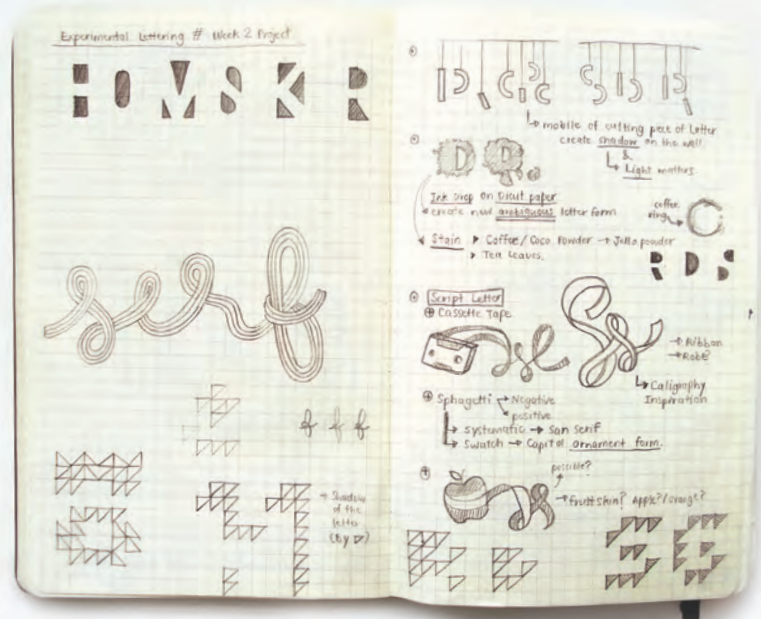 Experimental Lettering # Week 2 Project
HOMSKR
serf
f f f
→ Shadow
of the
letter
(By
mobile of cutting pect of Letter
create shadow on the wall
&
Light matters
D
Ink Drop on Dicut paper
create new ambiguous letter form
coffee
ring
Stain ▶ Coffee/ Coco Powder → Jello powder
▶ Tea leaves.
R D S
Script Letter
⊕ Cassette Tape
→ Ribbon
→ Robe?
Caligraphy
Inspiration
⊕ Sphagetti → Negative
→ positive
→ Systematic → San Serif
→ Swatch → Capital ornament form.
possible?
→ fruit skin? Apple?/orange?